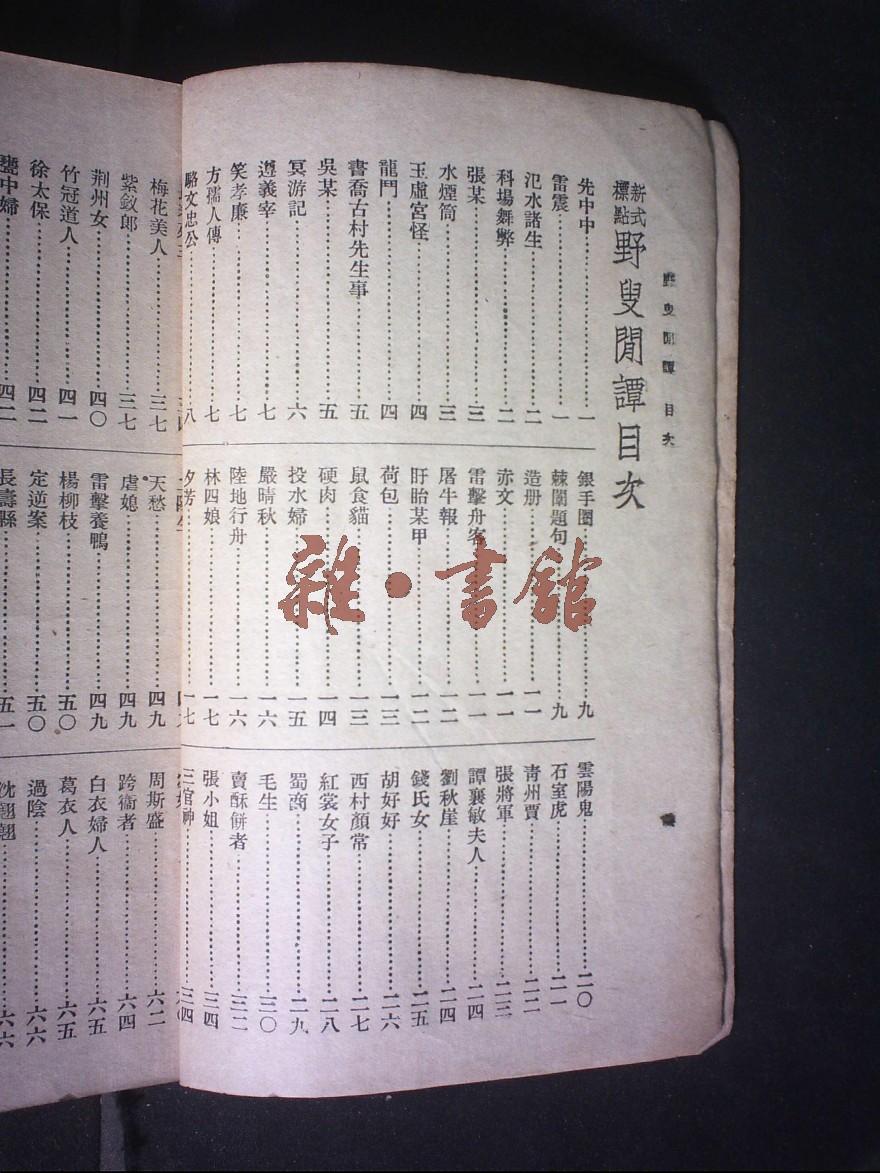 野叟閒譚 目次
新式標點 野叟閒譚目次
先中中……一
雷震……一
汜水諸生……二
科場舞弊……二
張某……三
水煙筒……三
玉虛宮怪……四
龍鬥……四
書喬古村先生事……五
吳某……五
冥游記……六
遵義宰……七
笑孝廉……七
方孺人傳……七
駱文忠公……八
銀手圈……九
棘闈題句……九
造册……一一
赤文……一一
雷擊舟客……一一
屠牛報……一二
盱眙某甲……一二
荷包……一三
鼠食貓……一三
硬肉……一四
投水婦……一五
嚴晴秋……一六
陸地行舟……一六
林四娘……一七
夕芳……一七
雲陽鬼……二〇
石室虎……二一
青州賈……二二
張將軍……二三
譚襄敏夫人……二四
劉秋崖……二四
錢氏女……二五
胡好好……二六
西村顏常……二七
紅裳女子……二八
蜀商……二九
毛生……三〇
賣酥餅者……三二
張小姐……三四
三官神……三四
梅花美人……三七
紫釵郎……三七
荆州女……四〇
竹冠道人……四一
徐太保……四二
甕中婦……四二
天愁……四九
虐媳……四九
雷擊養鴨……四九
楊柳枝……五〇
定逆案……五〇
長壽縣……五一
周斯盛……六二
跨衞者……六四
白衣婦人……六五
葛衣人……六五
過陰……六六
沈翹翹……六六
雜·書館